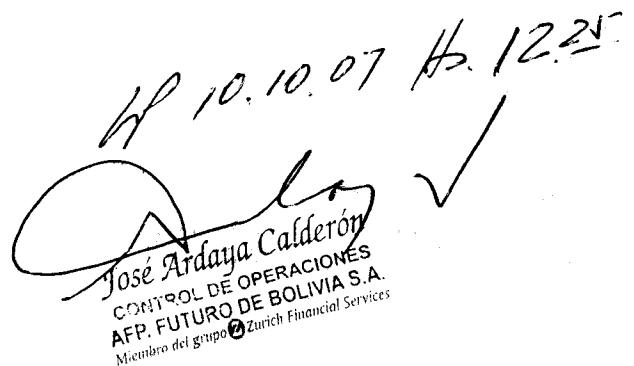 10.10.07 Hs. 12.25
José Ardaya Calderón
CONTROL DE OPERACIONES
AFP. FUTURO DE BOLIVIA S.A.
Miembro del grupo Zurich Financial Services